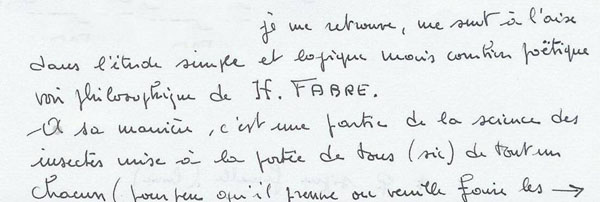 je me retrouve, me sent à l'aise
dans l'étude simple et logique mais combien poëtique
voir philosophique de H. FABRE.
A sa manière, c'est une partie de la science des
insectes mise à la portée de tous (sic) de tout un
chacun (pour peu qu'il prenne ou veuille faire les →